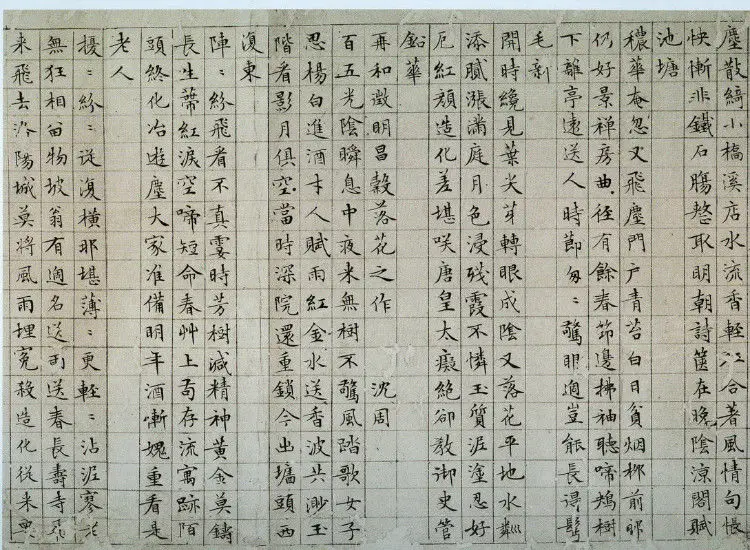 塵散綺小橋溪店水流香輕以合著風情句悵
怏慚非鐵石腸愁取明朝詩篋在晚陰涼閣賦
池塘
穠華奄忽又飛塵門戶青苔白日貧烟柳前郵
仍好景禅房曲径有餘春笻邊拂袖聽啼鴂樹
下離亭速送人時節匆〻驚過豈能長得鬢
毛新
開時纔見葉尖芽轉眼成陰又落花平地水
添膩漲滿庭月色浸殘霞不憐玉質泥塗忍好
厄紅顏造化差堪咲唐皇太癡絕卻教御史管
鉛華
再和徵明昌穀落花之作 沈周
百五光陰瞬息中夜来無樹不驚風踏歌女子
忍楊白進酒才人賦雨紅金水送香波共渺玉
階看影月俱空當時深院還重鎖今出墻頭西
復東
陣〻紛飛看不真霎時芳樹減精神黃金莫鑄
長生蔕紅淚空啼短命春艸上苟存流寓跡陌
頭終化冶遊塵大家准備明年酒慚媿重看是
老人
擾〻紛〻從復橫那堪薄〻更輕〻沾泥寥於
無狂相留物坡翁有過名送雨送春長壽寺飛
来飛去洛陽城莫將風雨埋冤殺造化從来要